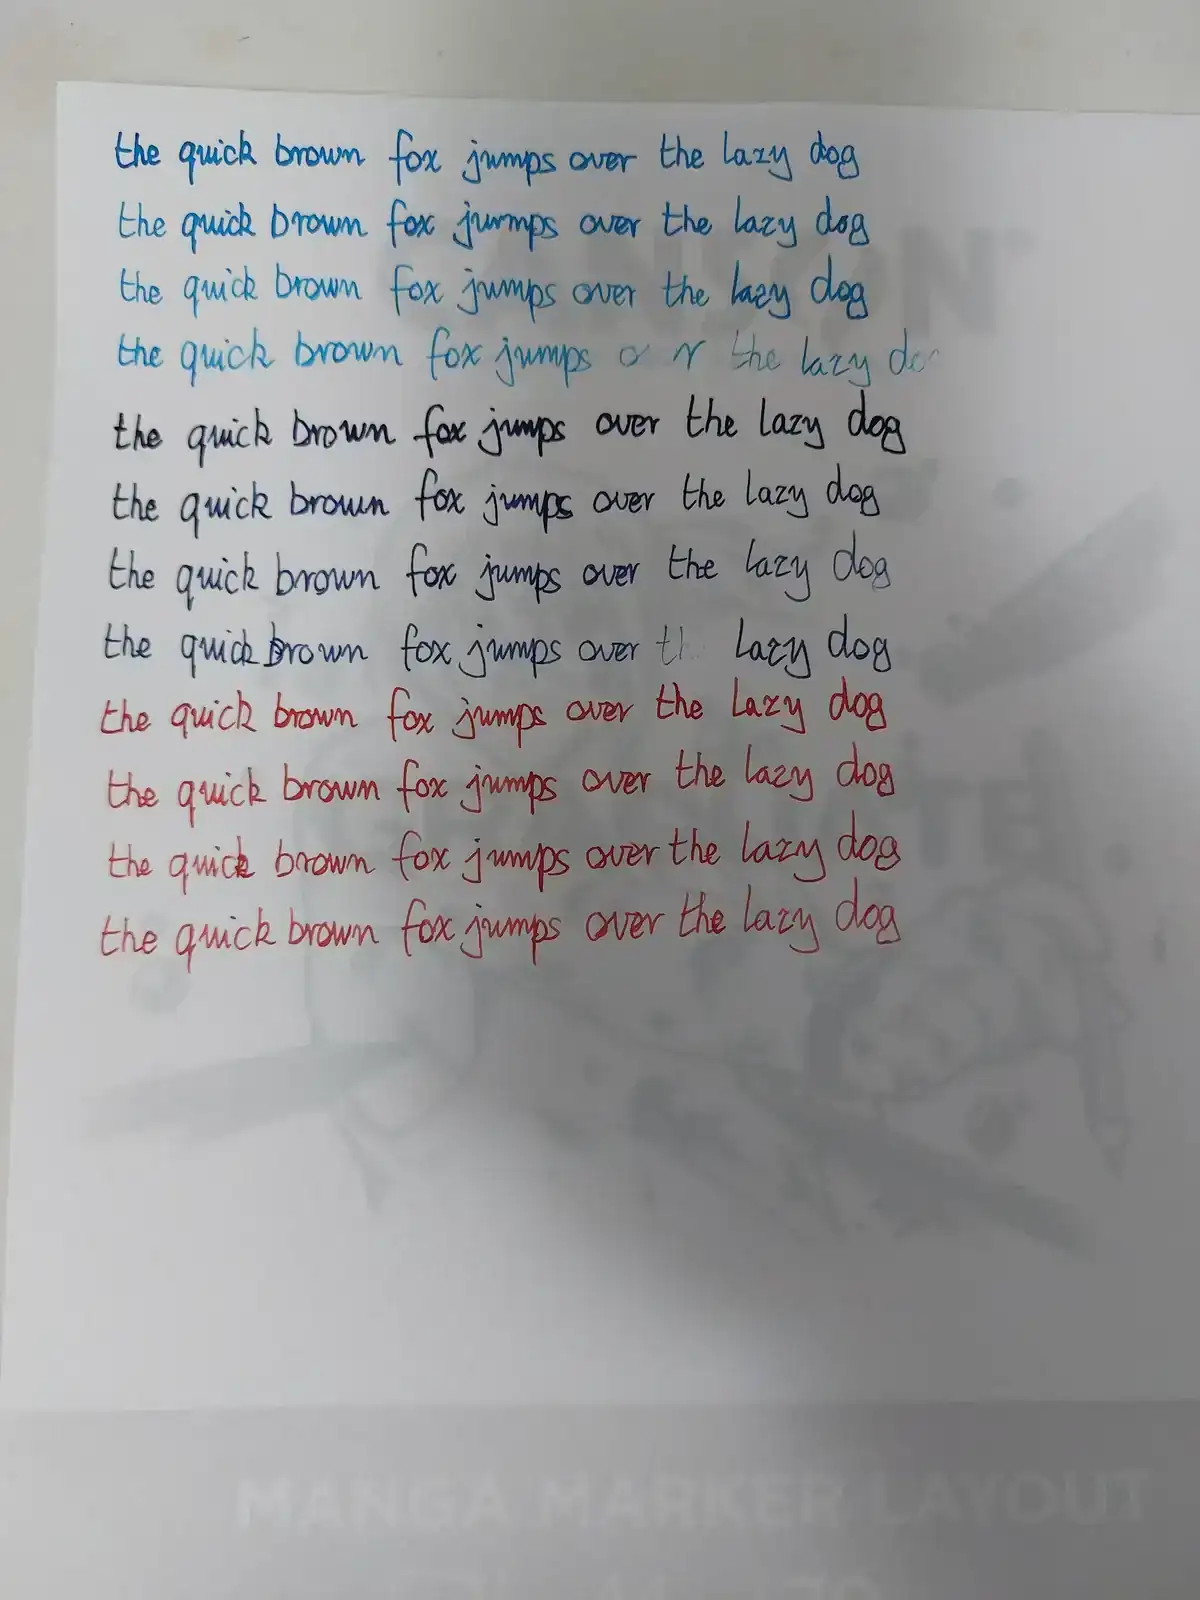 the quick brown fox jumps over the lazy dog
the quick brown fox jumps over the lazy dog
the quick brown fox jumps over the lazy dog
the quick brown fox jumps the lazy
the quick brown fox jumps over the lazy dog
the quick brown fox jumps over the lazy dog
the quick brown fox jumps over the lazy dog
the quick brown fox jumps over lazy dog
the quick brown fox jumps over the lazy dog
the quick brown fox jumps over the lazy dog
the quick brown fox jumps over the lazy dog
the quick brown fox jumps over the lazy dog
MANGA MARKER LAYOUT